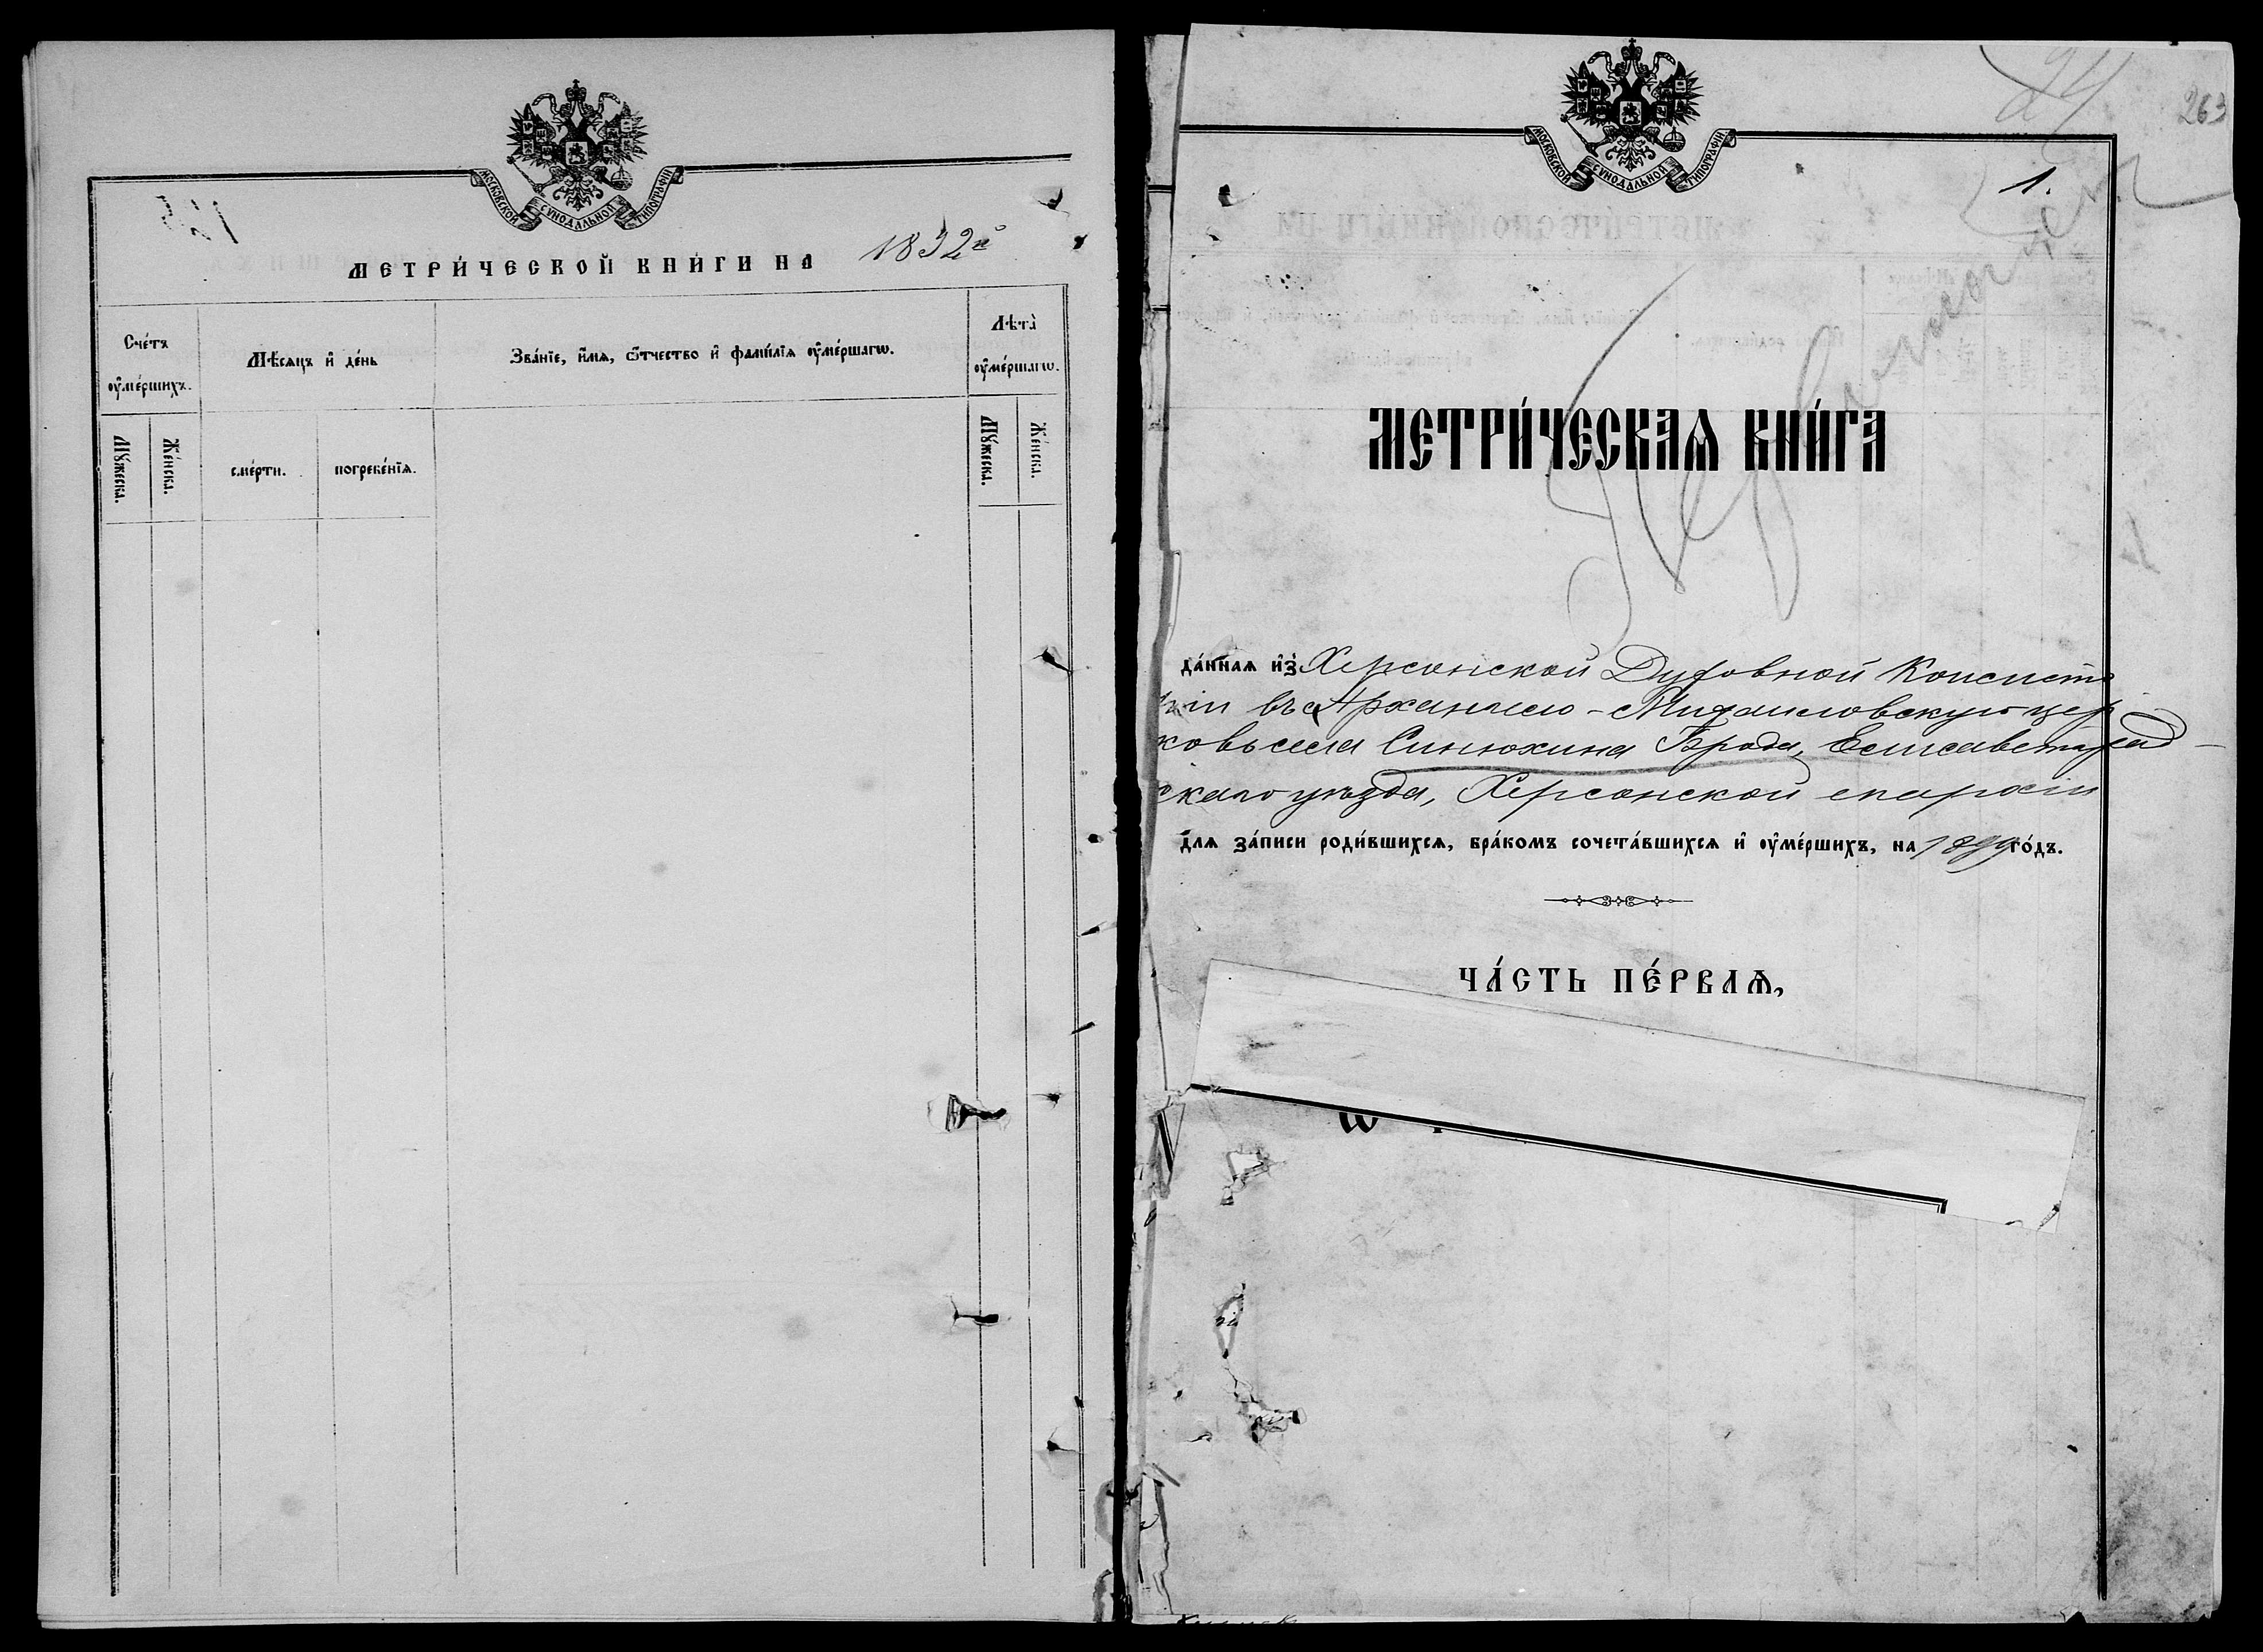 МОСКОВСКОЙ СѴНОДАЛЬНОЙ ТИПОГРАФІИ
МЕТРИ́ЧЕСКОЙ КНИ́ГИ НА
Сче́тъ ᲂу҆ме́ршихъ.
Мѣ́сяцъ и҆ де́нь
Зва́нїе, и҆́мѧ, ѻ҆́тчество и҆ фамі́лїѧ ᲂу҆ме́ршагѡ.
Лѣта̀ ᲂу҆ме́ршагѡ.
Мꙋ́жеска.
Же́нска.
сме́рти.
погребе́нїѧ.
Мꙋ́жеска.
Же́нска.
263
МОСКОВСКОЙ СѴНОДАЛЬНОЙ ТИПОГРАФІИ
1.
МЕТРИ́ЧЕСКАѦ КНИ́ГА
да́ннаѧ и҆з̾ Херсонской Духовной Консисто
ріи въ Архангело-Михаиловскую цер
ковь села Синюхина Брода, Елисаветград-
скаго уѣзда, Херсонской епархіи
длѧ за́писи роди́вшихсѧ, бра́комъ сочета́вшихсѧ и҆ ᲂу҆ме́ршихъ, на 1899 го́дъ.
ЧА́СТЬ ПЕ́РВАѦ,